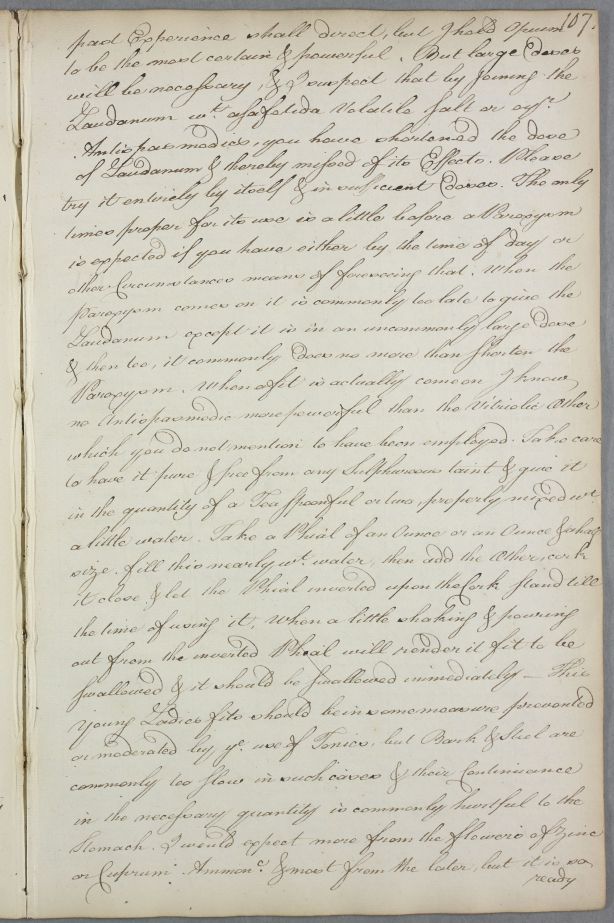 107.
past Experience shall direct, but I hold Opium
to be the most certain & powerful. But large Doses
will be necessary, & I suspect that by joining the
Laudanum wt. asafetida Volatile Salt or oyr.
Antispasmodics, you have shortened the dose
of Laudanum & thereby missed of its Effects. Please
try it entirely by itself & in sufficient Doses. The only
times proper for its use is a little before a Paroxysm
is expected if you have either by the time of day or
other Circumstances means of foreseeing that. When the
Paroxysm comes on it is commonly too late to give the
Laudanum except it is in an uncommonly large dose
& then too, it commonly does no more than shorten the
Paroxysm. When a fit is actually come on I know
no Antispasmodic more powerful than the Vitriolic Æther
which you do not mention to have been employed. Take care
to have it pure & free from any Sulphureous taint & give it
in the quantity of a Tea spoonful or two, properly mixed wt.
a little water. Take a Phial of an Ounce or an Ounce & a half
size. fill this nearly wt. water, then add the Æther, cork
it close & let the Phial inverted upon the Cork stand till
the time of using it, when a little shaking & pouring
out from the inverted Phial will render it fit to be
swallowed & it should be swallowed immediately — This
young Ladies fits should be in some measure prevented
or moderated by ye. use of Tonics, but Bark & Steel are
commonly too slow in such cases & their Continuance
in the necessary quantity is commonly hurtful to the
Stomach. I would expect more from the flowers of Zinc
or Cuprum Ammonc. & most from the later, but it is so
ready